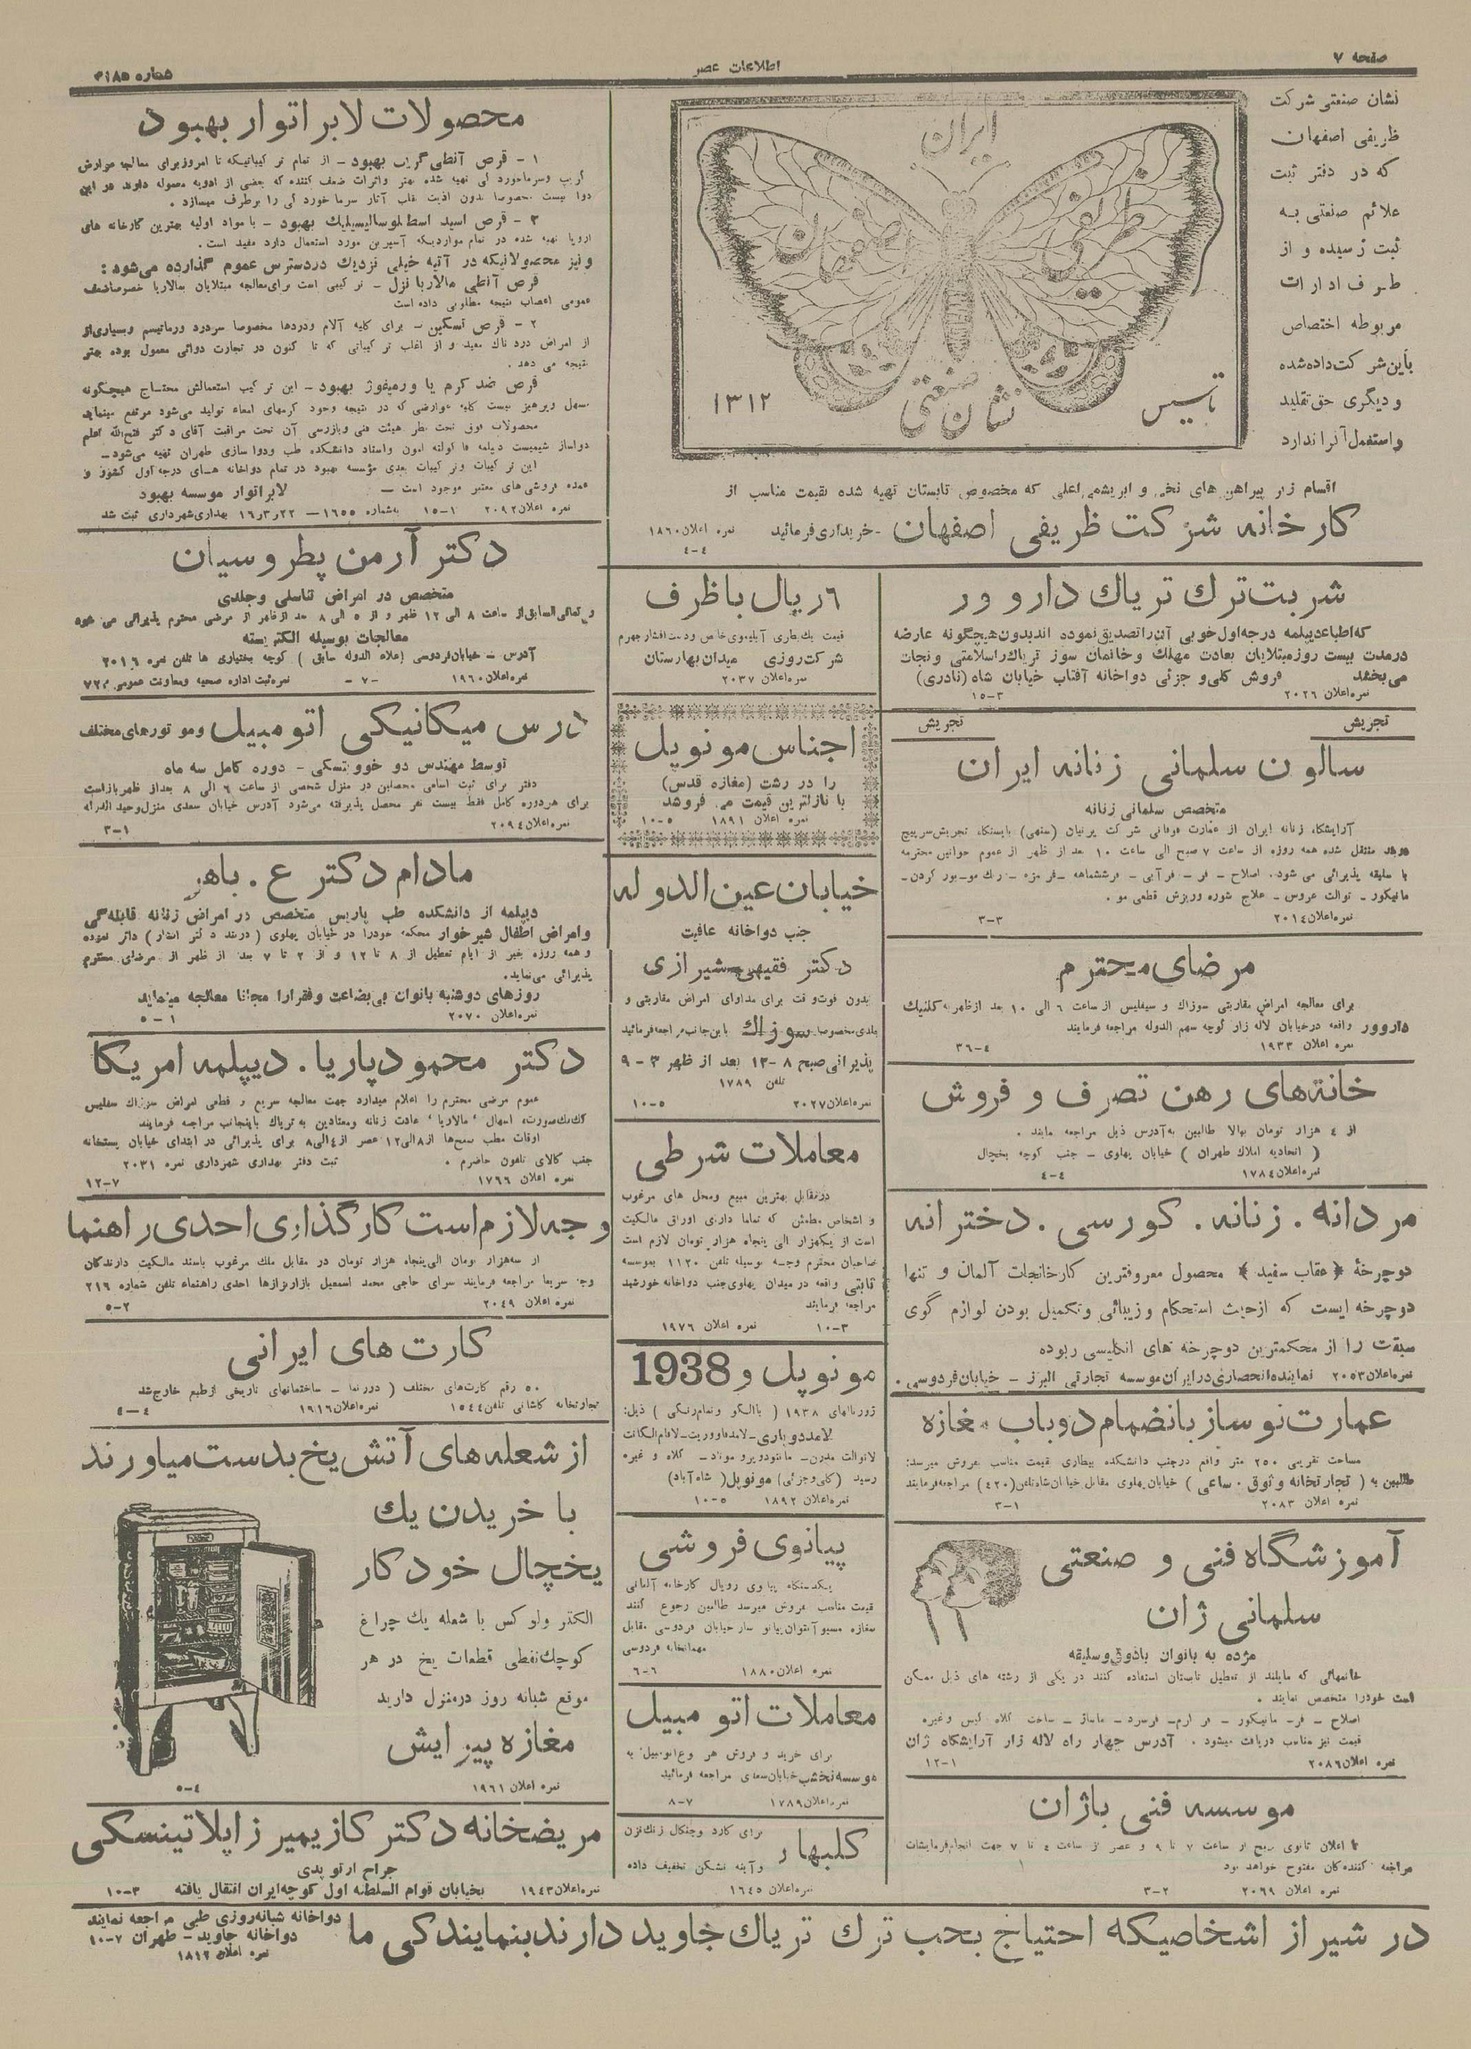 صفحه ۷
اطلاعات عصر
شماره ۳۱۸۵
نشان صنعتی شرکت
ظریفی اصفهان
که در دفتر ثبت
علائم صنعتی به
ثبت رسیده و از
طرف ادارات
مربوطه اختصاص
باین شرکت داده شده
و دیگری حق تقلید
و استعمال آنرا ندارد
ایران
ظریفی اصفهان
نشان صنعتی
تاسیس ۱۳۱۲
اقسام زیر پیراهن های نخی و ابریشمی اعلی که مخصوص تابستان تهیه شده بقیمت مناسب از
کارخانه شرکت ظریفی اصفهان - خریداری فرمائید
نمره اعلان ۱۸۶۰
۴-۴
شربت ترك تریاك دارو ور
که اطباء دیپلمه درجه اول خوبی آن را تصدیق نموده اند بدون هیچگونه عارضه
در مدت بیست روز مبتلایان بعادت مهلك و خانمان سوز تریاك را سلامتی و نجات
می بخشد فروش کلی و جزئی دواخانه آفتاب خیابان شاه (نادری)
نمره اعلان ۲۰۲۶ ۳-۱۵
تجریش تجریش
سالون سلمانی زنانه ایران
متخصص سلمانی زنانه
آرایشگاه زنانه ایران از عمارت فوقانی شرکت پرنیان (منهی) بایستگاه تجریش سرپیچ
منتقل شده همه روزه از ساعت ۷ صبح الی ساعت ۱۰ بعد از ظهر از عموم خوانین محترمه
با سلیقه پذیرائی می شود. اصلاح - فر - فرآبی - فرششماهه - فرمژه - رنگ مو - بور کردن -
مانیکور - توالت عروس - علاج شوره و ریزش قطعی مو.
نمره اعلان ۲۰۱۴ ۳-۳
مرضای محترم
برای معالجه امراض مقاربتی سوزاك و سیفلیس از ساعت ۶ الی ۱۰ بعد از ظهر به کلنیك
داروور واقعه در خیابان لاله زار کوچه سهم الدوله مراجعه فرمایند
نمره اعلان ۱۹۳۳ ۴-۳۶
خانه های رهن تصرف و فروش
از ۴ هزار تومان ببالا طالبین به آدرس ذیل مراجعه نمایند.
( اتحادیه املاك طهران ) خیابان پهلوی - جنب کوچه یخچال
نمره اعلان ۱۷۸۴ ۴-۴
مردانه . زنانه . کورسی . دخترانه
دوچرخهٔ «عقاب سفید» محصول معروفترین کارخانجات آلمان و تنها
دوچرخه ایست که از حیث استحکام و زیبائی و تکمیل بودن لوازم گوی
سبقت را از محکمترین دوچرخه های انگلیسی ربوده
نمره اعلان ۲۰۵۳ نماینده انحصاری در ایران موسسه تجارتی البرز - خیابان فردوسی.
عمارت نوساز بانضمام دو باب مغازه
مساحت تقریبی ۲۵۰ متر واقع در جنب دانشکده بیطاری قیمت مناسب بفروش میرسد:
طالبین به ( تجارتخانه وثوق . ساعی ) خیابان پهلوی مقابل خیابان شاه تلفن (۴۲۰) مراجعه فرمایند
نمره اعلان ۲۰۸۳ ۱-۳
آموزشگاه فنی و صنعتی
سلمانی ژان
مژده به بانوان باذوق و سلیقه
خانمهائی که مایلند از تعطیل تابستان استفاده کنند در یکی از رشته های ذیل ممکن
است خود را متخصص نمایند.
اصلاح - فر - مانیکور - فر آرم - فر سرد - ماساژ - ساخت کلاه گیس و غیره
قیمت نیز مناسب دریافت میشود. آدرس چهار راه لاله زار آرایشگاه ژان
نمره اعلان ۲۰۸۶ ۱-۱۲
موسسه فنی باژان
تا اعلان ثانوی صبح از ساعت ۷ تا ۹ و عصر از ساعت ۴ تا ۷ جهت انجام فرمایشات
مراجعه کنندگان مفتوح خواهد بود
نمره اعلان ۲۰۶۹ ۲-۳
۶ ریال با ظرف
قیمت یك بطری آبلیموی خاص ودست افشار جهرم
شرکت روزی میدان بهارستان
نمره اعلان ۲۰۳۷
اجناس مونوپل
را در رشت (مغازه قدس)
با نازلترین قیمت می فروشد
نمره اعلان ۱۸۹۱ ۵-۱۰
خیابان عین الدوله
جنب دواخانه عافیت
دکتر فقیهی شیرازی
بدون فوت وقت برای مداوای امراض مقاربتی و
جلدی مخصوصا سوزاك باین جانب مراجعه فرمائید
پذیرائی صبح ۸-۱۲ بعد از ظهر ۳-۹
تلفن ۱۷۸۹
نمره اعلان ۲۰۲۷ ۵-۱۰
معاملات شرطی
در مقابل بهترین مبیع ومحل های مرغوب
و اشخاص مطمئن که تماما دارای اوراق مالکیت
است از یکهزار الی پنجاه هزار تومان لازم است
صاحبان محترم وجه بوسیله تلفن ۱۱۲۰ بموسسه
ثابتی واقعه در میدان پهلوی جنب دواخانه خورشید
مراجعه فرمایند
نمره اعلان ۱۹۷۶ ۳-۱۰
مونوپل و 1938
ژورنالهای ۱۹۳۸ ( باالگو وتمام رنگی ) ذیل:
لامددوپاری - لامدفاووریت - لافام الگانت
لانوالت مدرن - مانتودوپرومناد - کلاه و غیره
رسید (کلی وجزئی) مونوپل (شاه آباد)
نمره اعلان ۱۸۹۲ ۵-۱۰
پیانوی فروشی
یکدستگاه پیانوی رویال کارخانه آلمانی
قیمت مناسب بفروش میرسد طالبین رجوع کنند
مغازه مسیو آنتوان پیانو ساز خیابان فردوسی مقابل
مهمانخانه فردوسی
نمره اعلان ۱۸۸۰ ۶-۶
معاملات اتومبیل
برای خرید و فروش هر نوع اتومبیل به
موسسه نخشب خیابان سعدی مراجعه فرمائید
نمره اعلان ۱۷۸۹ ۷-۸
گلبهار
برای کارد وچنگال زنگ نزن
و آینه نشکن تخفیف داده
نمره اعلان ۱۶۴۵
محصولات لابراتوار بهبود
۱ - قرص آنطی گریپ بهبود - از تمام ترکیباتیکه تا امروز برای معالجه عوارض
گریپ وسرماخوردگی تهیه شده بهتر واثرات ضعف کننده که بعضی از ادویه معموله دارند در این
دوا نیست مخصوصا بدون اذیت قلب آثار سرماخوردگی را برطرف میسازد.
۲ - قرص اسید اسطیلوسالیسیلیك بهبود - با مواد اولیه بهترین کارخانه های
اروپا تهیه شده در تمام مواردیکه آسپرین مورد استعمال دارد مفید است.
و نیز محصولاتیکه در آتیه خیلی نزدیك در دسترس عموم گذارده می شود:
قرص آنطی مالاریا نزل - ترکیبی است برای معالجه مبتلایان بمالاریا خصوصا ضعف
عمومی اعصاب نتیجه مطلوبی داده است
۲ - قرص تسکین - برای کلیه آلام ودردها مخصوصا سردرد ورماتیسم وبسیاری از
از امراض دردناك مفید و از اغلب ترکیباتی که تا کنون در تجارت دوائی معمول بوده بهتر
نتیجه می دهد.
قرص ضد کرم یا ورمیفوژ بهبود - این ترکیب استعمالش محتاج هیچگونه
مسهل وپرهیز نیست کلیه عوارضی که در نتیجه وجود کرمهای امعاء تولید می شود مرتفع مینماید
محصولات فوق تحت نظر هیئت فنی وبازرسی آن تحت مراقبت آقای دکتر فتح الله اعلم
دواساز شیمیست دیپلمه فاکولته لیون واستاد دانشکده طب ودواسازی طهران تهیه می شود -
این ترکیبات وترکیبات بعدی مؤسسه بهبود در تمام دواخانه های درجه اول کشور و
عمده فروشی های معتبر موجود است - لابراتوار موسسه بهبود
نمره اعلان ۲۰۹۲ ۱-۱۵ بشماره ۱۶۵۵ - ۲۲ر۳ر۱۶ بهداری شهرداری ثبت شد
دکتر آرمن پطروسیان
متخصص در امراض تناسلی وجلدی
کمافی السابق از ساعت ۸ الی ۱۲ ظهر و از ۵ الی ۸ بعد از ظهر از مرضی محترم پذیرائی می شود
معالجات بوسیله الکتریسته
آدرس - خیابان فردوسی (علاء الدوله سابق ) کوچه بختیاری ها تلفن نمره ۲۰۱۶
نمره اعلان ۱۹۶۰ -۷- نمره ثبت اداره صحیه ومعاونت عمومی
درس میکانیکی اتومبیل وموتورهای مختلف
توسط مهندس دوخووتسکی - دوره کامل سه ماه
دفتر برای ثبت اسامی محصلین در منزل شخصی از ساعت ۶ الی ۸ بعد از ظهر باز است
برای هر دوره کامل فقط بیست نفر محصل پذیرفته می شود آدرس خیابان سعدی منزل وحیدالدوله
نمره اعلان ۲۰۹۴ ۱-۳
مادام دکتر ع . باهر
دیپلمه از دانشکده طب پاریس متخصص در امراض زنانه قابله گی
وامراض اطفال شیرخوار محکمه خود را در خیابان پهلوی دائر نموده
و همه روزه بغیر از ایام تعطیل از ۸ تا ۱۲ و از ۲ تا ۷ بعد از ظهر از مرضای محترم
پذیرائی می نماید.
روزهای دوشنبه بانوان بی بضاعت وفقرا را مجانا معالجه مینماید
نمره اعلان ۲۰۷۰ ۱-۵
دکتر محمود پاریا . دیپلمه امریکا
عموم مرضی محترم را اعلام میدارد جهت معالجه سریع و قطعی امراض سوزاك سفلیس
كك مك صورت، اسهال، مالاریا، عادت زنانه ومعتادین به تریاك باینجانب مراجعه فرمایند
اوقات مطب صبح ها از ۸ الی ۱۲ عصر از ۴ الی ۸ برای پذیرائی در ابتدای خیابان پستخانه
جنب کالای تلفون حاضرم. ثبت دفتر بهداری شهرداری نمره ۲۰۳۱
نمره اعلان ۱۷۶۶ ۷-۱۲
وجه لازم است کارگذاری احدی راهنما
از سه هزار تومان الی پنجاه هزار تومان در مقابل ملك مرغوب باسند مالکیت دارندگان
وجه سریعا مراجعه فرمایند سرای حاجی محمد اسمعیل بازار بزازها احدی راهنماء تلفن شماره ۲۱۶
نمره اعلان ۲۰۴۹ ۲-۵
کارت های ایرانی
۵۰ رقم کارت های مختلف ( دورنما - ساختمانهای تاریخی از طبع خارج شد
تجارتخانه کاشانی تلفن ۱۵۴۴ نمره اعلان ۱۹۱۶ ۴-۴
از شعله های آتش یخ بدست میاورند
با خریدن یك
یخچال خودکار
الکترولوکس با شعله یك چراغ
کوچك نفطی قطعات یخ در هر
موقع شبانه روز در منزل دارید
مغازه پیرایش
نمره اعلان ۱۹۶۱ ۴-۵
مریضخانه دکتر کازیمیر زاپلاتینسکی
جراح ارتوپدی
بخیابان قوام السلطنه اول کوچه ایران انتقال یافته
نمره اعلان ۱۹۴۳ ۳-۱۰
در شیراز اشخاصیکه احتیاج بحب ترك تریاك جاوید دارند بنمایندگی ما
دواخانه شبانه روزی طبی مراجعه نمایند
دواخانه جاوید - طهران ۷-۱۰
نمره اعلان ۱۸۱۲